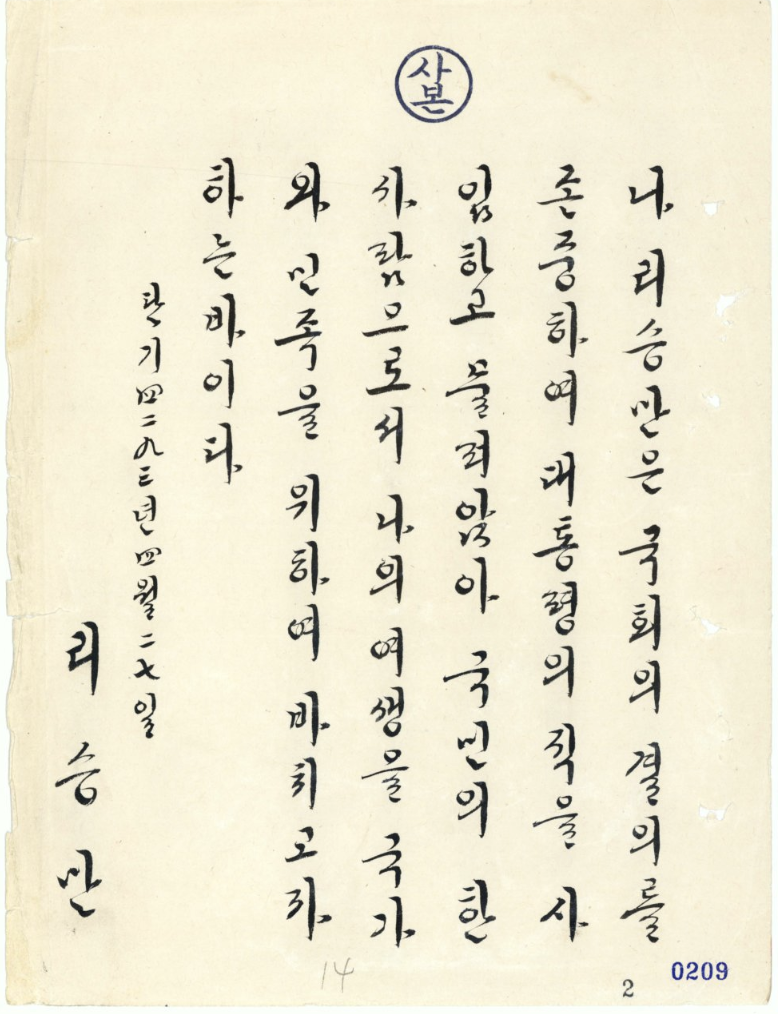 사본
나 리승만은 국회의 결의를
존중하여 대통령의 직을 사
임하고 물러앉아 국민의 한
사람으로서 나의 여생을 국가
와 민족을 위하여 바치고자
하는바이다
단기四二九三년四월二七일
리승만
14
2
0209